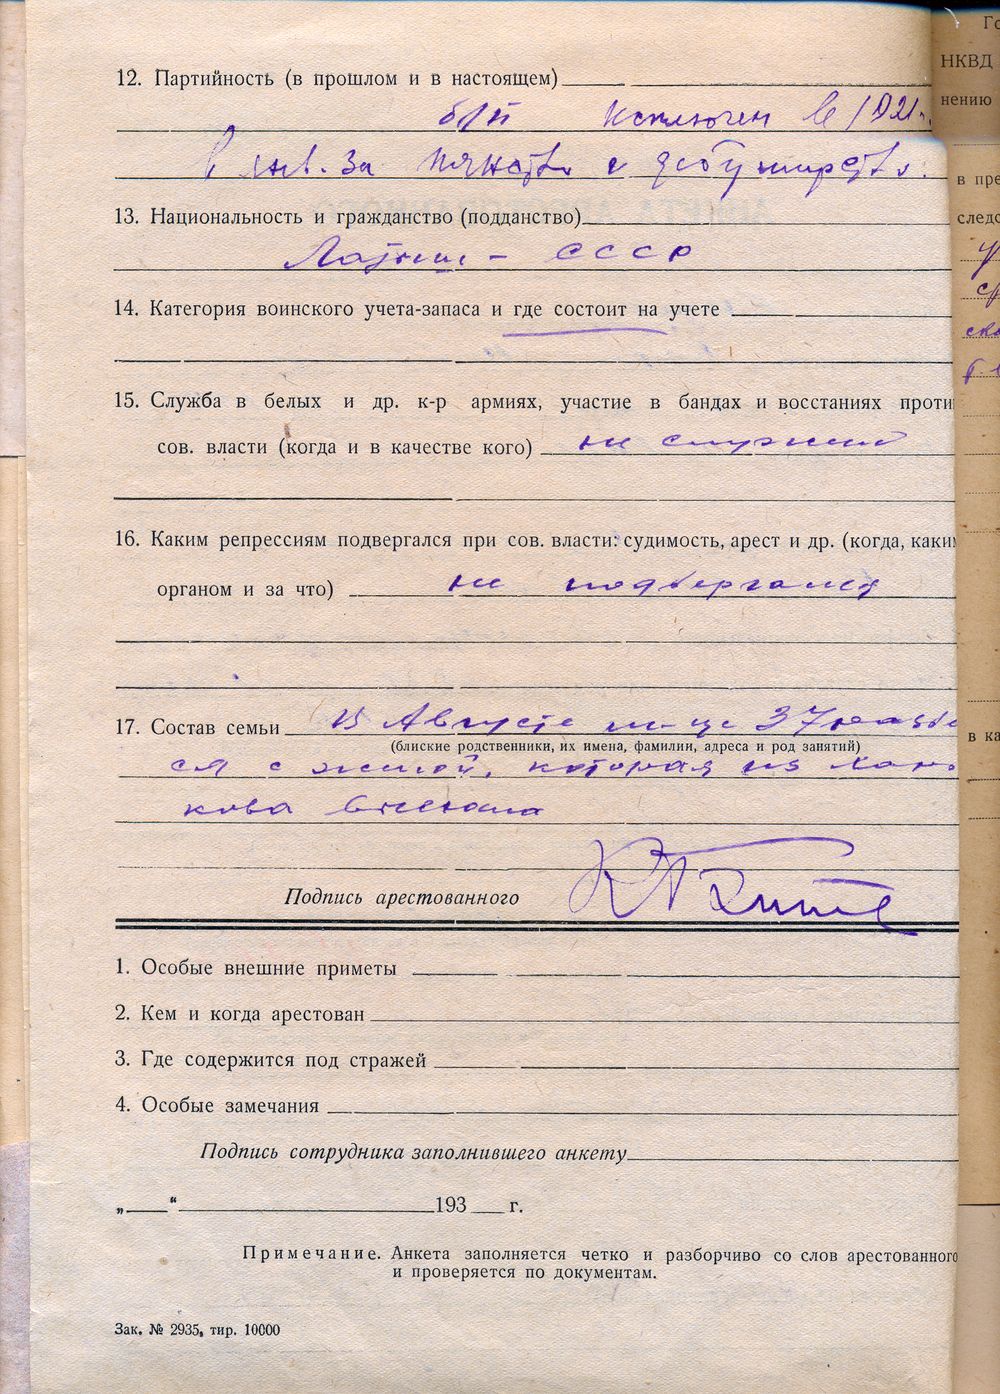 12. Партийность (в прошлом и в настоящем)
б/п исключен в 1921 г.
в янв. за пьянство и дебоширство.
13. Национальность и гражданство (подданство)
Латыш – СССР
14. Категория воинского учета-запаса и где состоит на учете
15. Служба в белых и др. к-р армиях, участие в бандах и восстаниях проти
сов. власти (когда и в качестве кого) не служил
16. Каким репрессиям подвергался при сов. власти: судимость, арест и др. (когда, каким
органом и за что) не подвергался
17. Состав семьи В Августе м-це 37
(блиские родственники, их имена, фамилии, адреса и род занятий)
ся с женой, которая из Харь
кова выехала
Подпись арестованного
1. Особые внешние приметы
2. Кем и когда арестован
3. Где содержится под стражей
4. Особые замечания
Подпись сотрудника заполнившего анкету
„ “ 193 г.
Примечание. Анкета заполняется четко и разборчиво со слов арестованного
и проверяется по документам.
Зак. № 2935, тир. 10000
НКВД
нению
в пре
следс
в ка